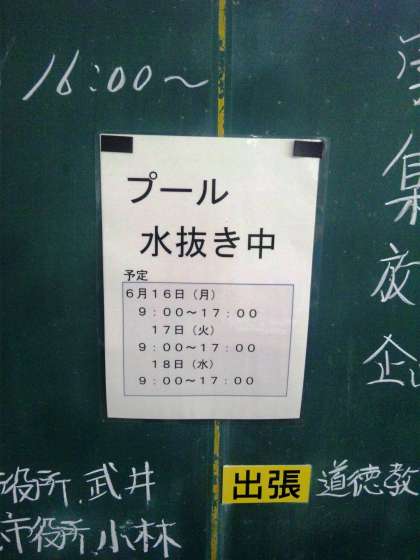 16:00〜
プール
水抜き中
予定
6月16日(月)
9:00〜17:00
17日(火)
9:00〜17:00
18日(水)
9:00〜17:00
集
企
役所 武井
出張 道徳教
市役所 小林